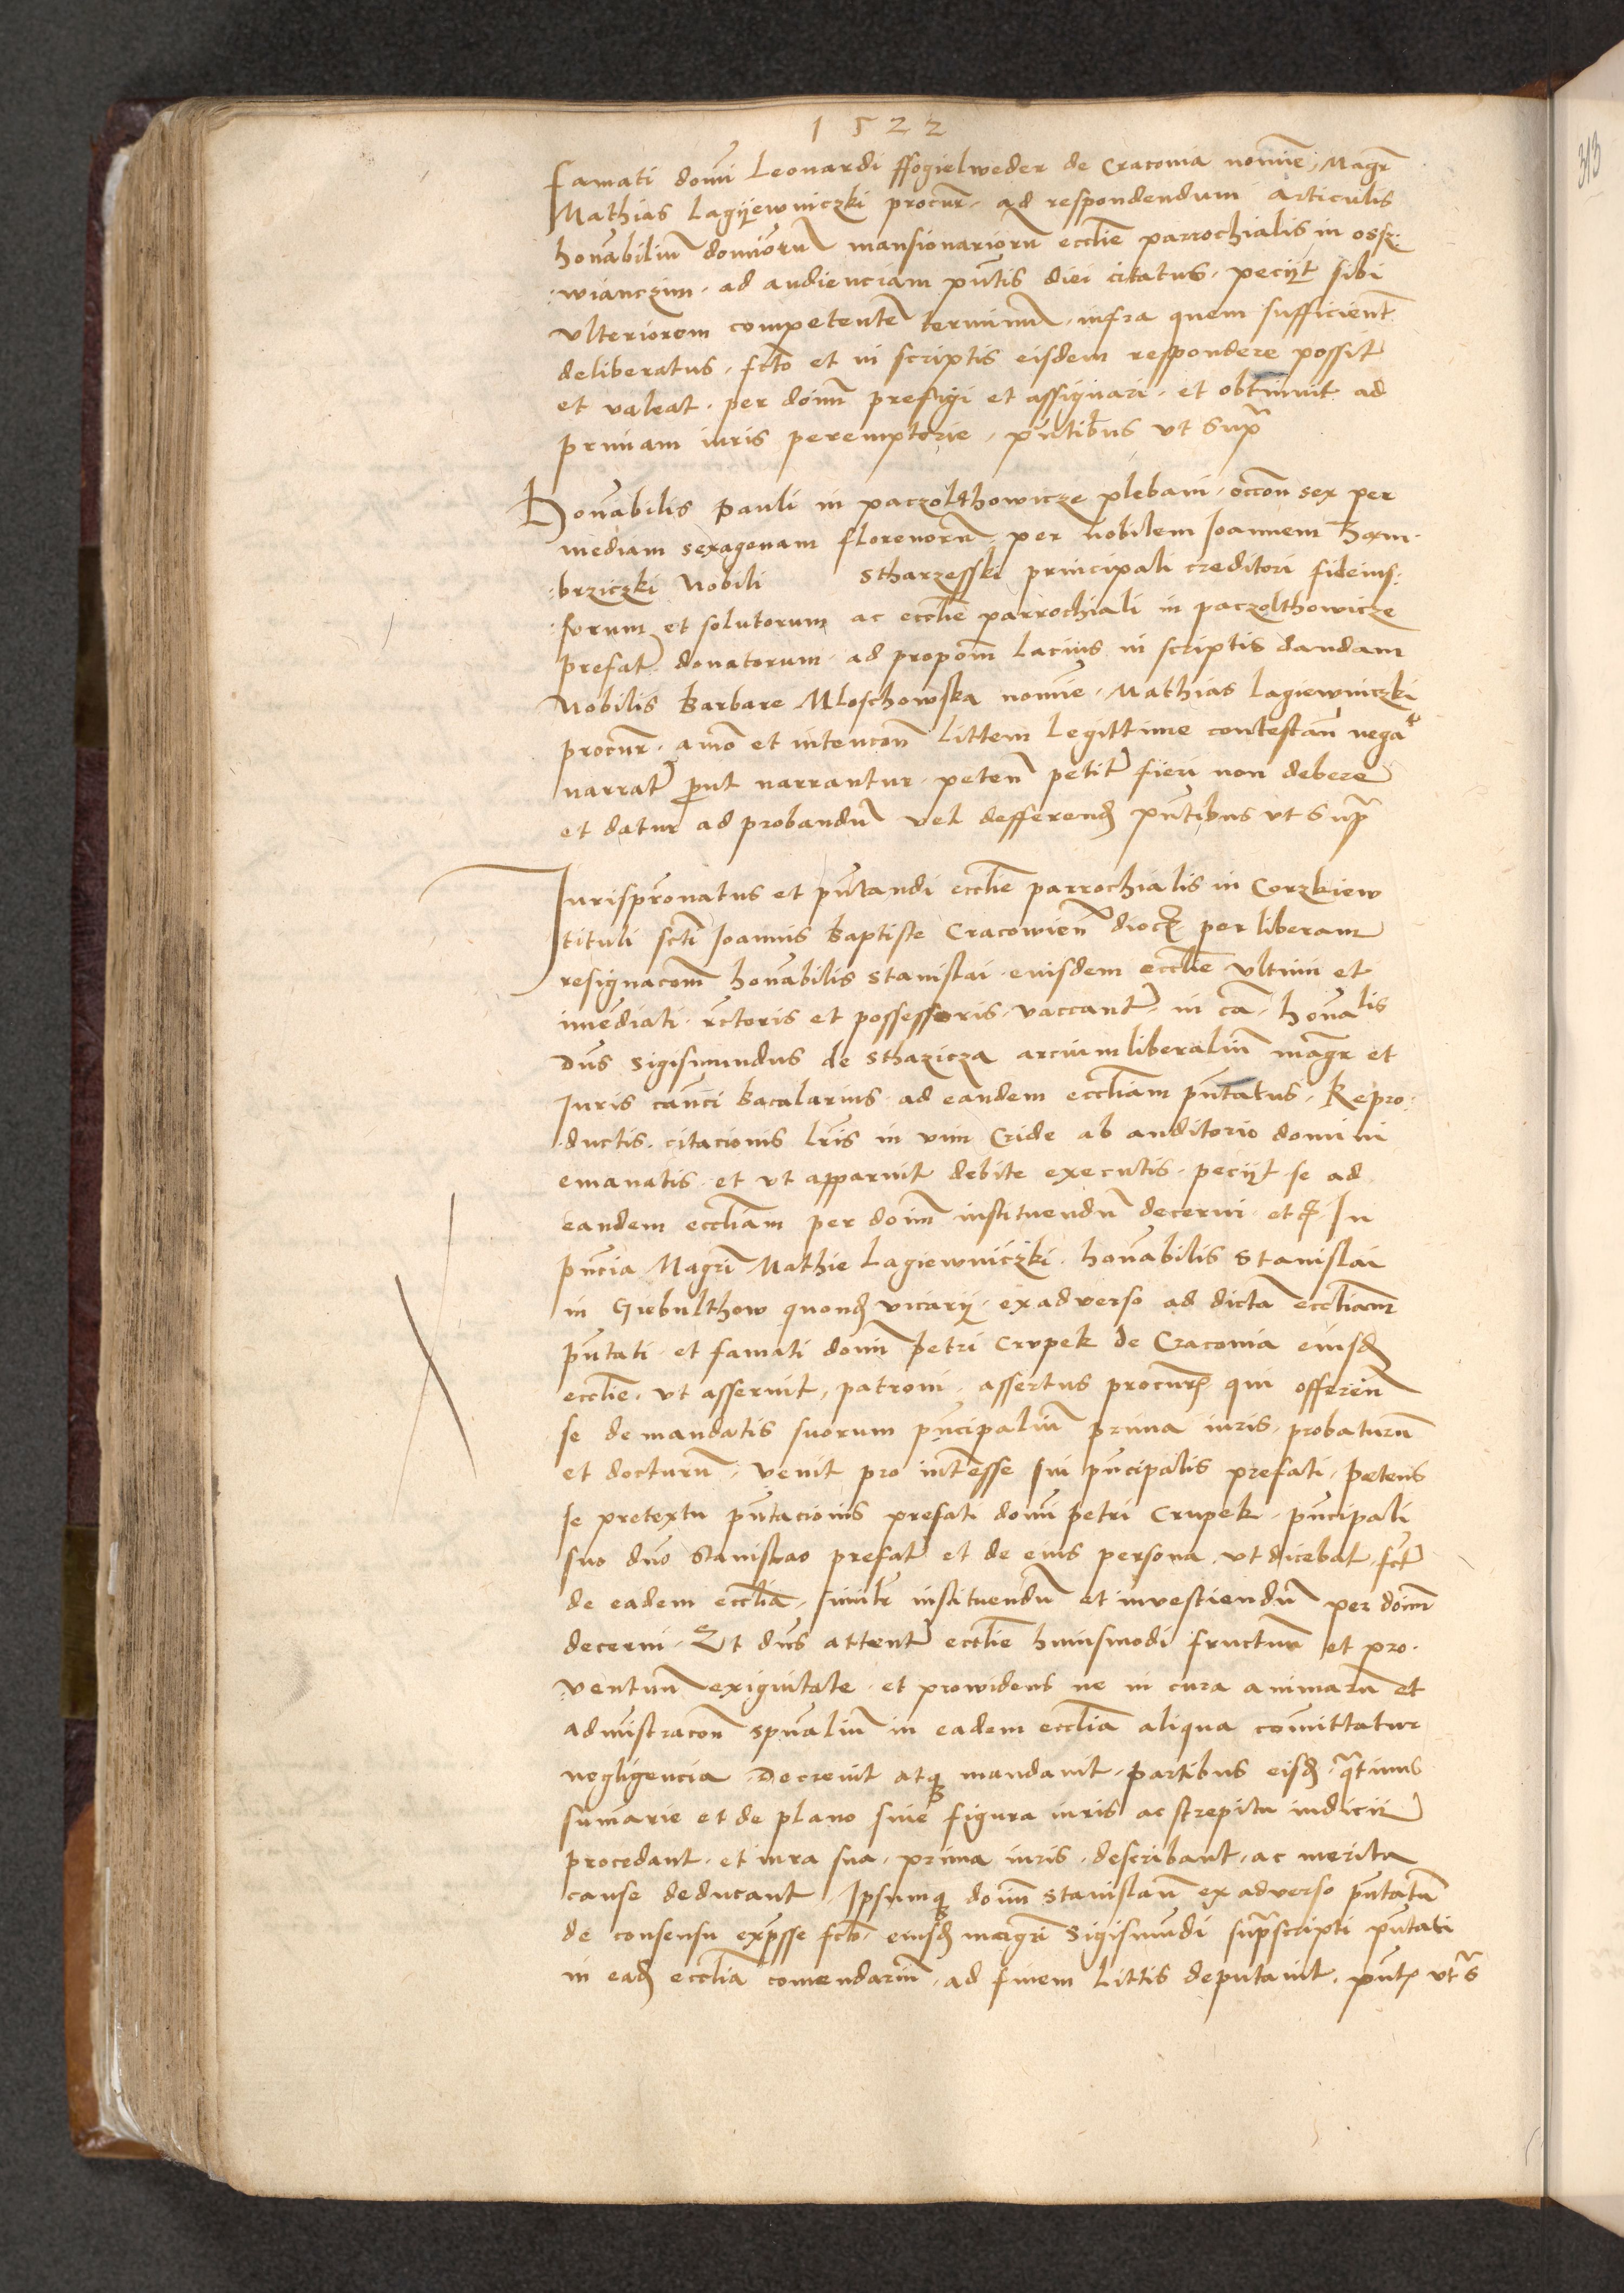 1522
famati domĩ Leonardi ffogielweder de Cracouia nomĩe, Magr̃
Mathias Lagyewniczki procur̃. ad respondendum articulis
honãbiliũ dominorũ mansionariorũ ecclie parrochialis in osz:
:wianczim. ad audienciam pñtis diei citatus. peciyt sibi
vlteriorem competentẽ terminũ infra quem sufficient̃
deliberatus, fcto et in scriptis eisdem respondere possit
et valeat. per dom̃ prefigi et assignari. et obtinuit ad
primam iuris peremptorie, pñtibus vt Supra
Honãbilis Pauli in paczolthowicze plebani, occõn sex per
mediam sexagenam florenorũ, per nobilem Joannem
:brziczki Nobili Stharzesski principali creditori fideius:
:forum et solutorum ac ecclie parrochiali in paczolthowicze
prefat̃ donatorum. ad propom̃ lacius in scriptis dandam
Nobilis Barbare Mloschowska nomĩe, Mathias Lagiewniczki
procur̃. aĩo et intencõn littem legittime contestañ nega
narrat̃ put narrantur. peteñ petit̃ fieri non debere
et datur ad probandũ vel defferend pñtibus vt Supra
Jurisprõnatus et pñtandi ecclie parrochialis in Corzkiew
tituli scti Joannis Baptiste Cracowieñ dioc per liberam
resignacom̃ honãbilis Stanislai eiusdem ecclie vltimi et
imẽdiati. rctoris et possessoris. vaccant̃. in ca. honãlis
Dñs Sigismundus de Sthazicza arcium liberaliũ mãgr et
Juris canci bacalarius ad eandem eccliam pñtatus, Repro:
:ductis citacionis lr̃is in vim Cride ab auditorio domini
emanatis. et vt apparuit debite executis. peciyt se ad
eandem eccliam per dom̃ instituendũ decerni. etc. In
pñcia Magr̃i Mathie Lagiewniczki. honãbilis Stanislai
in Giebulthow quond vicarij. exadverso ad dictã eccliam
pñtati. et famati domĩ Petri Crupek de Cracouia eiusd
ecclie. vt asseruit, patroni. assertus procur̃. qui offereñ
se de mandatis suorum pñcipaliũ prima iuris, probaturũ
et docturũ, venit pro interesse sui pñcipalis prefati, petens
se pretextu pñtacionis prefati domĩ Petri Crupek. pñcipali
suo dño Stanislao prefat̃ et de eius persona, vt dicebat. fct̃
de eadem ecclia, similr̃ instituendũ et investiendũ per dom̃
decerni. Et dñs attent̃ ecclie huiusmodi fructuũ et pro.
:ventuũ exiguitate. et prowidens ne in cura animarũ et
admistracõn spũaliũ in eadem ecclia aliqua comittatur
negligencia. Decreuit atq mandauit. partibus eisd. qtinus
sumarie et de plano sine figura iuris ac strepitu iudicii
procedant. et iura sua. prima iuris. describant. ac merita
cause deducant. Ipsumq dom̃ Stanislaũ exadverso pñtatũ
de consensu exp̃sse fcto. eiusd magr̃i Sigismũdi suprascripti pñtati
in ead ecclia comendariũ, ad finem littis deputauit. pñt̃. vt S
313